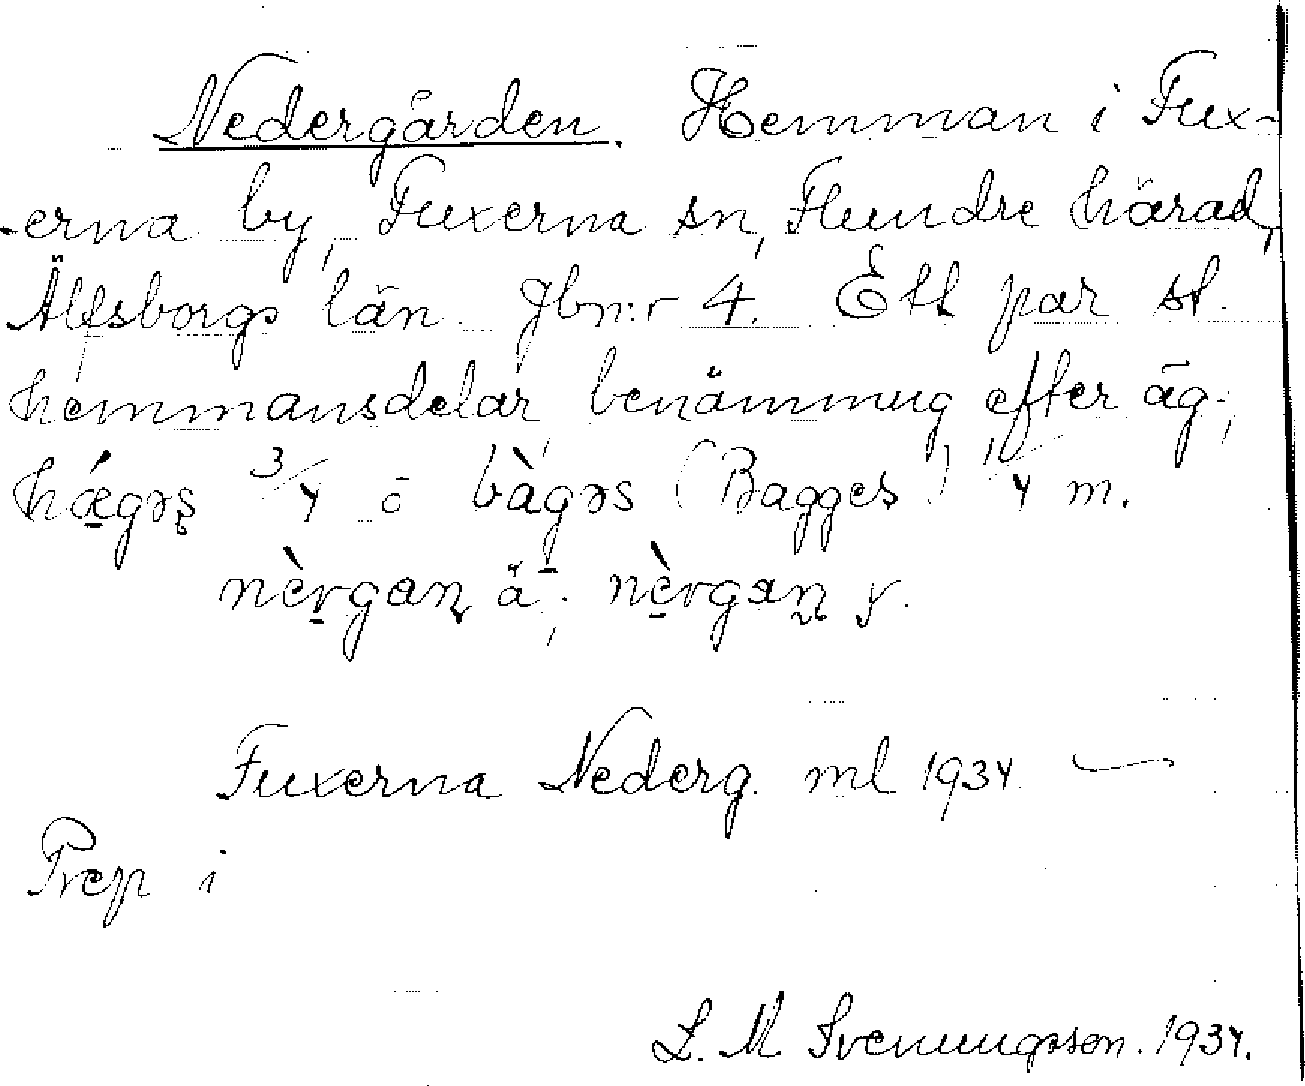 Nedergården. Hemman i Fux-
-erna by, Fuxerna sn, Flundre härad,
Älfsborgs län. Jbnr 4. Ett par st.
hemmansdelar benämnug efter äg.,
hǽgəs 3/4 o bàgəs (Bagges) 1/4 m.
nèrgaɳ ä.; nèrgəɳ y.
Fuxerna Nederg. ml 1934
Prep i
L. M. Svenungsson. 1934.